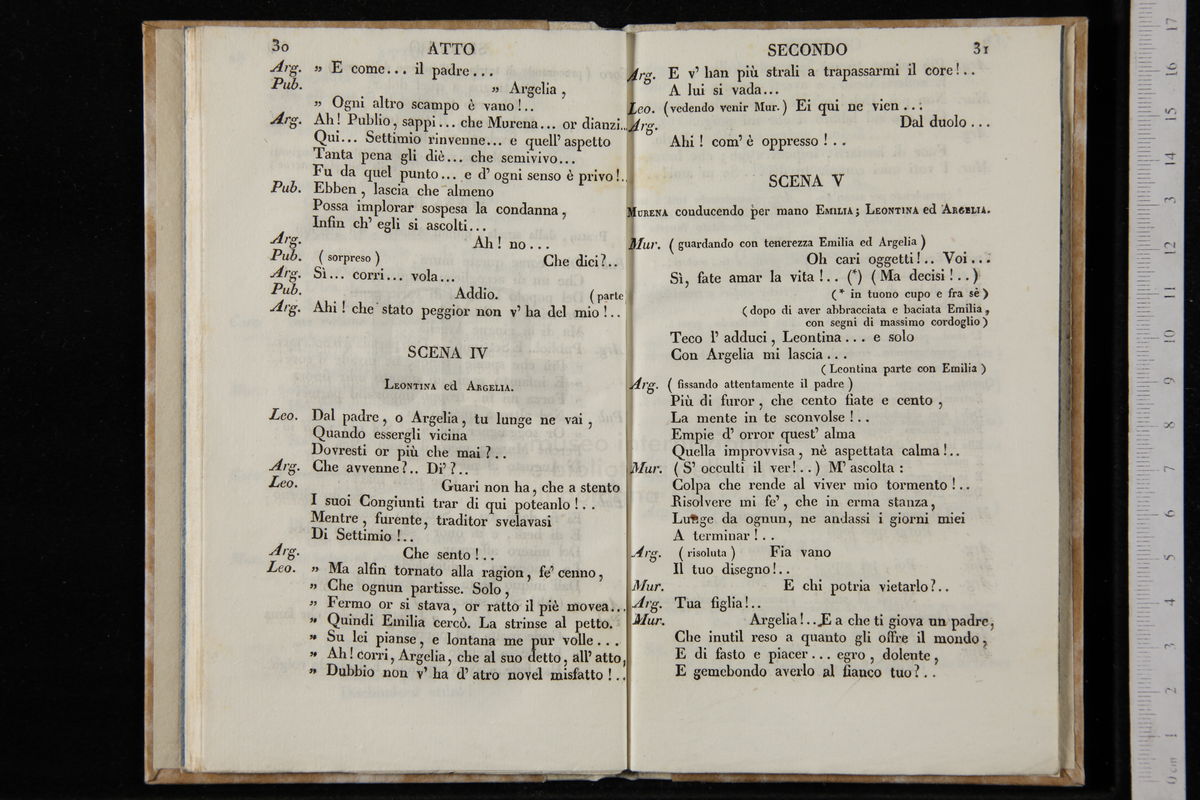 30 ATTO
Arg. „ E come... il padre...
Pub. „ Argelia,
„ Ogni altro scampo è vano!..
Arg. Ah! Publio, sappi... che Murena... or dianzi..
Qui... Settimio rinvenne... e quell' aspetto
Tanta pena gli diè... che semivivo...
Fu da quel punto... e d' ogni senso è privo!..
Pub. Ebben, lascia che almeno
Possa implorar sospesa la condanna,
Infin ch' egli si ascolti...
Arg. Ah! no...
Pub. (sorpreso) Che dici?..
Arg. Sì... corri... vola...
Pub. Addio. (parte
Arg. Ahi! che stato peggior non v' ha del mio!..
SCENA IV
LEONTINA ed ARGELIA.
Leo. Dal padre, o Argelia, tu lunge ne vai,
Quando essergli vicina
Dovresti or più che mai?..
Arg. Che avvenne?.. Di'?..
Leo. Guari non ha, che a stento
I suoi Congiunti trar di qui poteanlo!..
Mentre, furente, traditor svelavasi
Di Settimio!..
Arg. Che sento!..
Leo. „ Ma alfin tornato alla ragion, fe' cenno,
„ Che ognun partisse. Solo,
„ Fermo or si stava, or ratto il piè movea...
„ Quindi Emilia cercò. La strinse al petto.
„ Su lei pianse, e lontana me pur volle...
„ Ah! corri, Argelia, che al suo detto, all' atto,
„ Dubbio non v' ha d' atro novel misfatto!..
SECONDO 31
Arg. E v' han più strali a trapassarmi il core!..
A lui si vada...
Leo. (vedendo venir Mur.) Ei qui ne vien...
Arg. Dal duolo...
Ahi! com' è oppresso!..
SCENA V
MURENA conducendo per mano EMILIA; LEONTINA ed ARGELIA.
Mur. (guardando con tenerezza Emilia ed Argelia)
Oh cari oggetti!.. Voi...
Sì, fate amar la vita!.. (*) (Ma decisi!..)
(* in tuono cupo e fra sè)
(dopo di aver abbracciata e baciata Emilia,
con segni di massimo cordoglio)
Teco l' adduci, Leontina... e solo
Con Argelia mi lascia...
(Leontina parte con Emilia)
Arg. (fissando attentamente il padre)
Più di furor, che cento fiate e cento,
La mente in te sconvolse!..
Empie d' orror quest' alma
Quella improvvisa, nè aspettata calma!..
Mur. (S' occulti il ver!..) M' ascolta:
Colpa che rende al viver mio tormento!..
Risolvere mi fe', che in erma stanza,
Lunge da ognun, ne andassi i giorni miei
A terminar!..
Arg. (risoluta) Fia vano
Il tuo disegno!..
Mur. E chi potria vietarlo?..
Arg. Tua figlia!..
Mur. Argelia!.. E a che ti giova un padre,
Che inutil reso a quanto gli offre il mondo,
E di fasto e piacer... egro, dolente,
E gemebondo averlo al fianco tuo?..